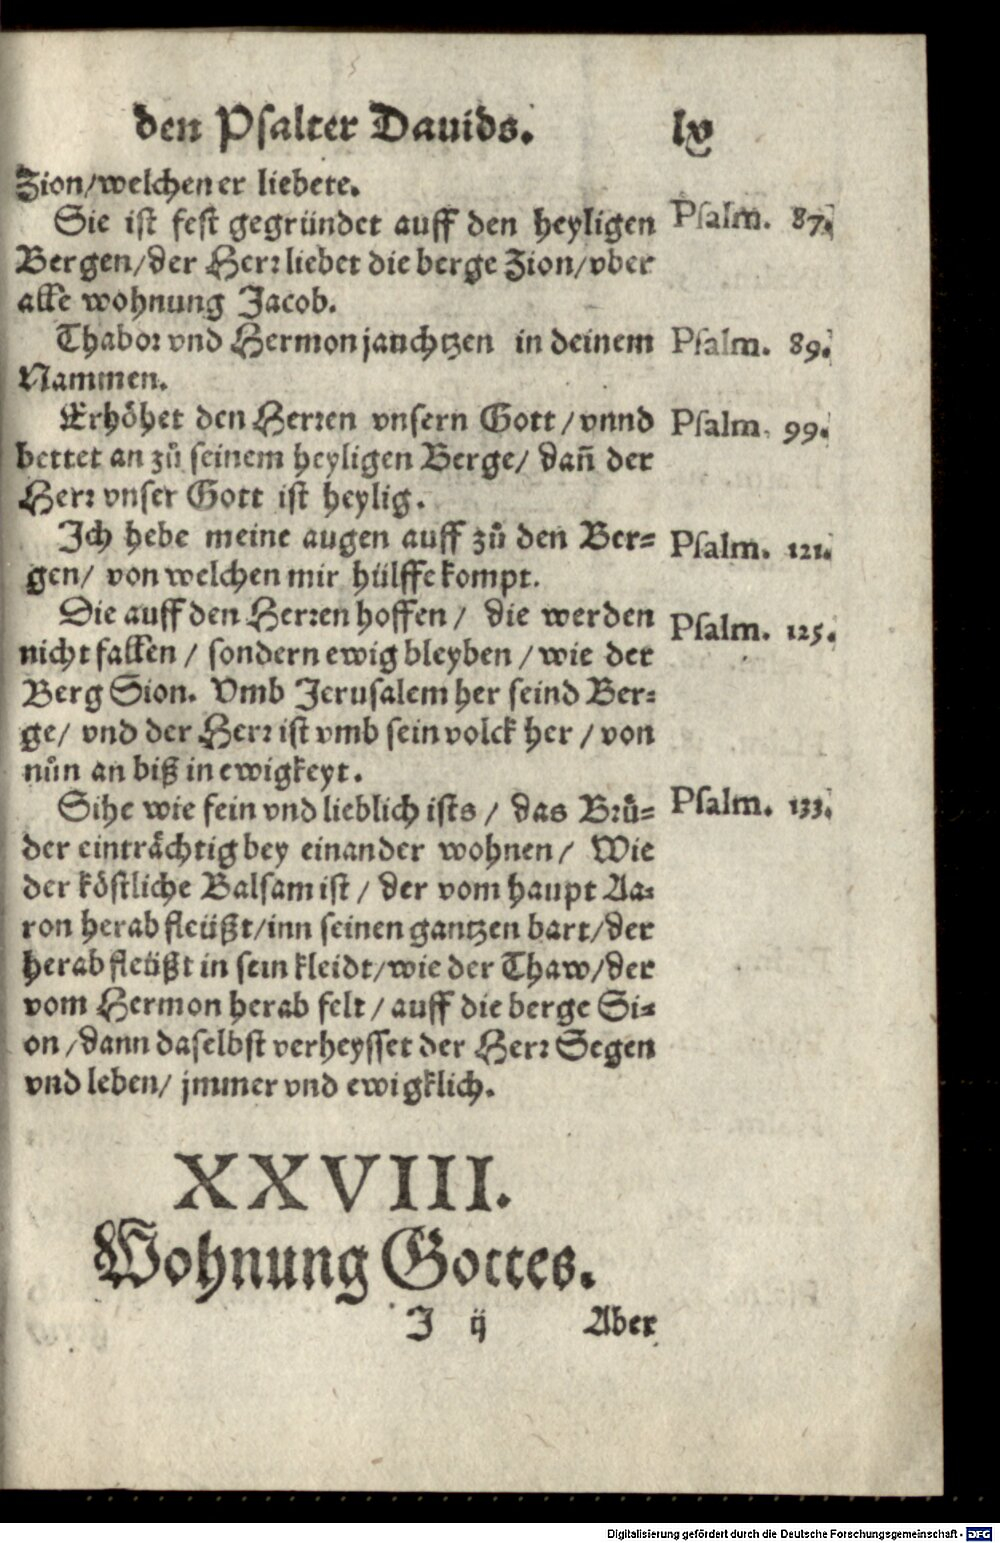 den Psalter Dauids. lv
Zion/welchen er liebete.
Sie ist fest gegründet auff den heyligen Psalm. 87.
Bergen/der Herr liebet die berge Zion/vber
alle wohnung Jacob.
Thabor vnd Hermon jauchtzen in deinem Psalm. 89.
Nammen.
Erhöhet den Herren vnsern Gott/vnnd Psalm. 99.
bettet an zů seinem heyligen Berge/ dañ der
Herr vnser Gott ist heylig.
Ich hebe meine augen auff zů den Ber= Psalm. 121.
gen/ von welchen mir hülffe kompt.
Die auff den Herren hoffen/ die werden Psalm. 125.
nicht fallen/ sondern ewig bleyben/wie der
Berg Sion. Vmb Jerusalem her seind Ber=
ge/ vnd der Herr ist vmb sein volck her/von
nůn an biß in ewigkeyt.
Sihe wie fein vnd lieblich ists/ das Brü= Psalm. 133.
der einträchtig bey einander wohnen/ Wie
der köstliche Balsam ist/ der vom haupt Aa=
ron herab fleüßt/inn seinen gantzen bart/der
herab fleüßt in sein kleidt/wie der Thaw/der
vom Hermon herab felt/auff die berge Si=
on/dann daselbst verheysset der Herr Segen
vnd leben/ jmmer vnd ewigklich.
XXVIII.
Wohnung Gottes.
J ij Aber
Digitalisierung gefördert durch die Deutsche Forschungsgemeinschaft - DFG